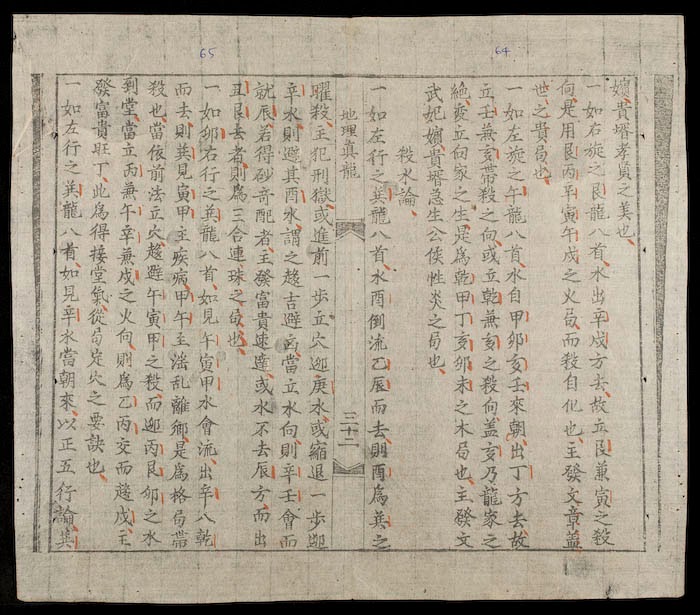 64
嬪貴壻孝賢之美也
一如右旋之艮龍八首水出辛戌方去故立艮兼寅之殺
向是用艮丙辛寅午戌之火局而殺自化也主發文章盖
世之貴局也
一如左旋之午龍八首水自甲卯亥壬來朝出丁方去故
立壬兼亥帶殺之向或立乾兼亥之殺向盖亥乃龍家之
絶處立向家之生是爲乾甲丁亥卯未之木局也主發文
武妃嬪貴壻急生公侯性炎之局也
殺水論
一如左行之巽龍八首水酉倒流乙辰而去則酉爲巽之
地理真龍
三十二
65
曜殺主犯刑獄或進前一步立穴迎庚水或縮退一步迎
辛水則避其酉水謂之趍吉避凶當立水向則辛壬會而
就辰若得砂奇配者主發富貴速達或水不去辰方而出
丑艮去者則爲三合連珠之局也
一如卯右行之巽龍八首如見午寅甲水會流出辛八乾
而去則巽見寅甲主疾病甲午主滛乱離鄉是爲格局帶
殺也當依前法立穴趍避午寅甲之殺而迎丙艮卯之水
到堂當立丙兼午辛兼戌之火向則爲乙丙交而趍戌主
發富貴旺丁此爲得接堂氣從局定穴之要訣也
一如左行之巽龍八首如見辛水當朝來以正五行論巽